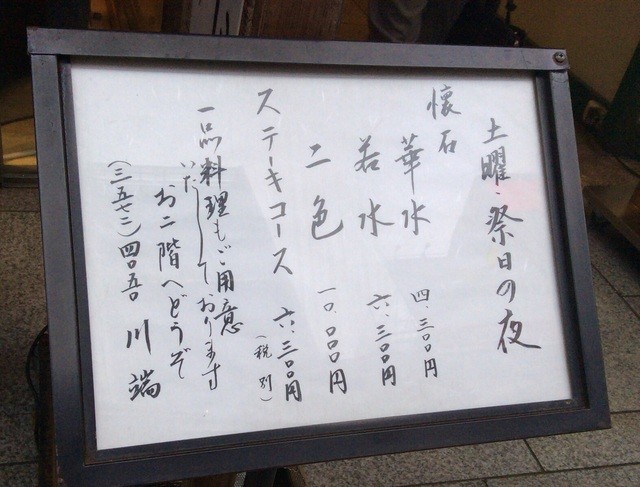 土曜・祭日の夜
懐石
華水 四、三〇〇円
若水 六、三〇〇円
二色 一〇、〇〇〇円
ステーキコース 六、三〇〇円
(税別)
一品料理もご用意
いたしております
お二階へどうぞ
(三五七二)四〇五〇 川端